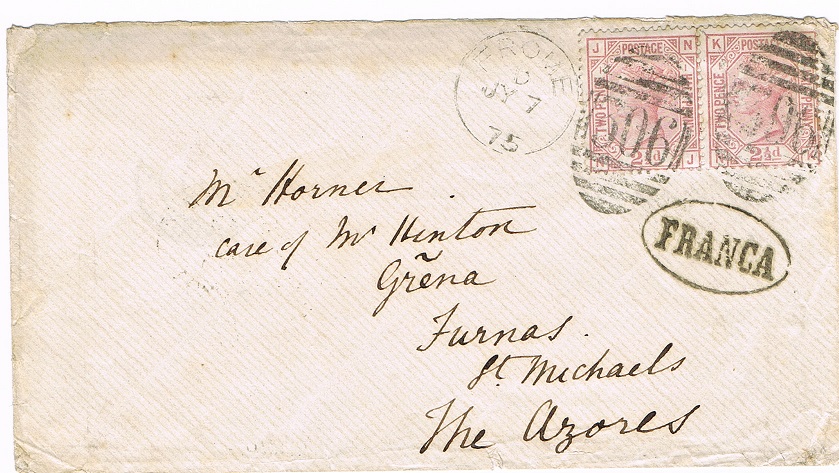 J POSTAGE N
TWO PENCE
2½d J
K POSTAGE
TWO PENCE
2½d
JY 7
75
FRANCA
Mr Horner
care of Mr Hinton
Grẽna
Furnas.
St. Michaels
The Azores